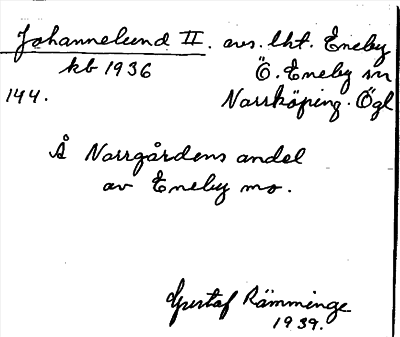 Johannelund II. avs. lht. Eneby
kb 1936 Ö. Eneby sn
144. Norrköping. Ögl
Å Norrgårdens andel
av Eneby mo.
Gustaf Rämminge
1939.